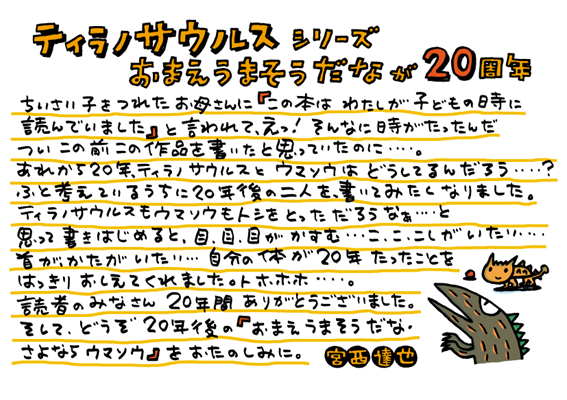 ティラノサウルス シリーズ
おまえうまそうだな が 20周年
ちいさい子をつれた お母さんに『この本は わたしが 子どもの時に
読んでいました』と言われて、えっ! そんなに時がたったんだ
つい この前 この作品を書いたと思っていたのに‥‥。
あれから20年、ティラノサウルスと ウマソウは どうしてるんだろう‥‥?
ふと考えているうちに20年後の二人を、書いてみたくなりました。
ティラノサウルスもウマソウもトシをとっただろうなぁ…と
思って 書きはじめると、目、目、目が かすむ…こ、こ、こしが いたい‥‥
首が、かたが いたい… 自分の体が 20年 たったことを
はっきり おしえてくれました。トホホホ‥‥。
読者のみなさん 20年間 ありがとうございました。
そして、どうぞ 20年後の『おまえうまそうだな・
さよなら ウマソウ』を おたのしみに。 宮西達也